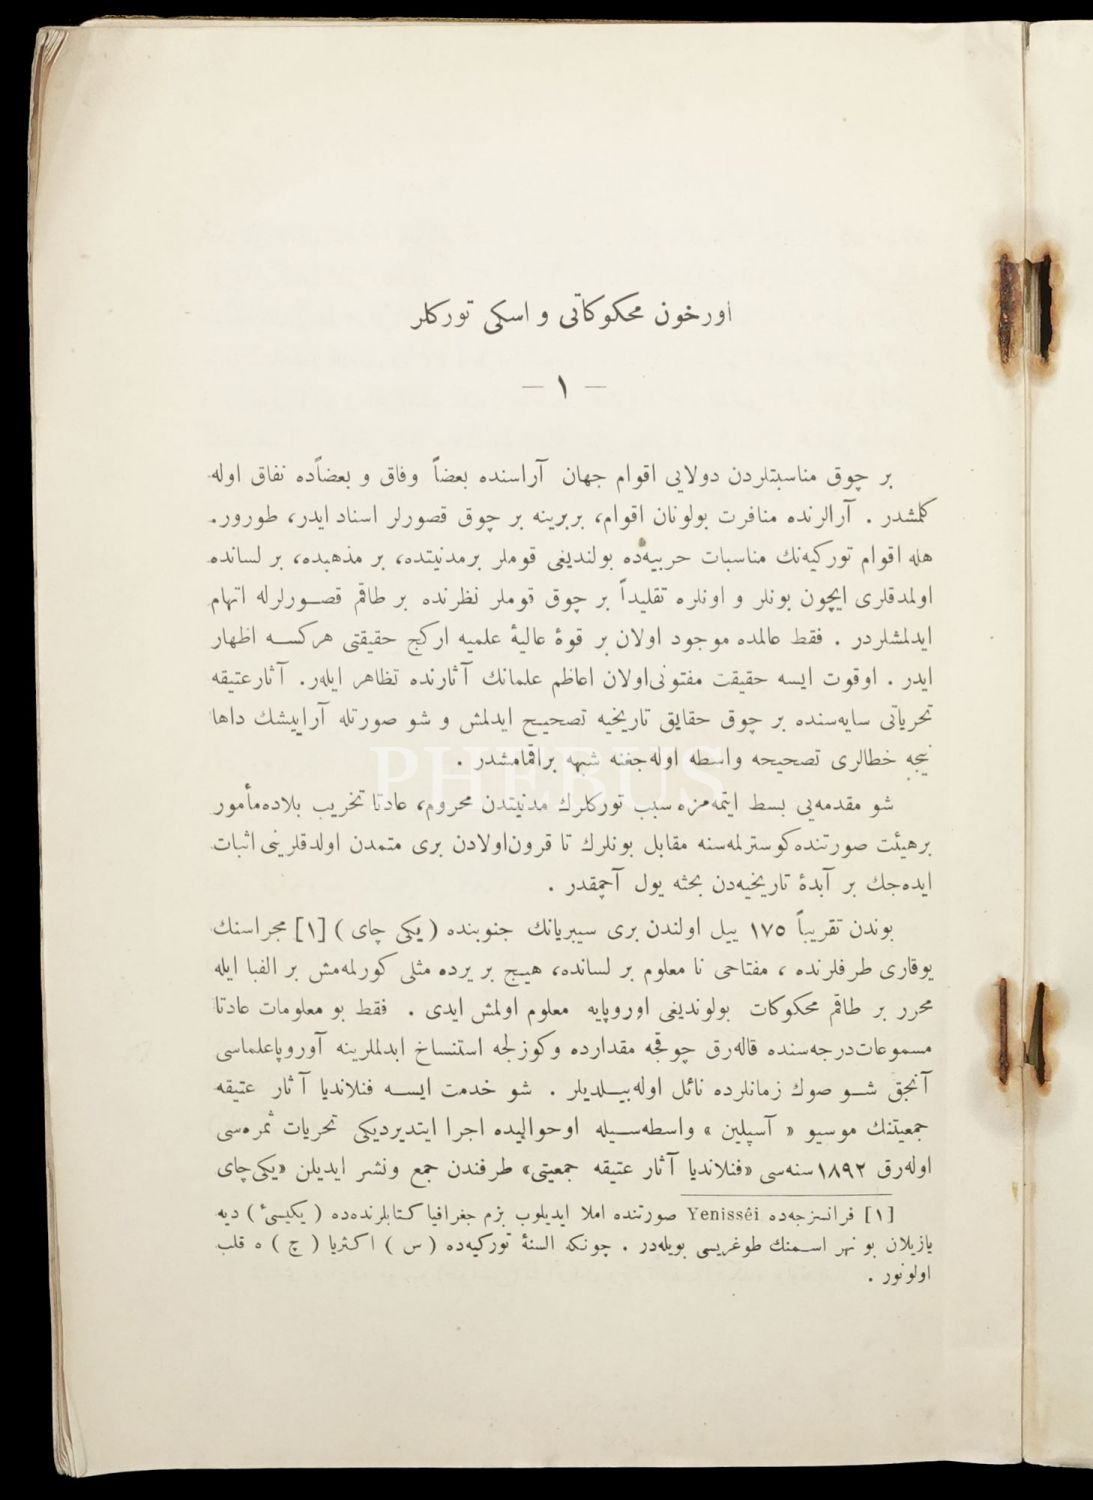 اورخون محكوكاتی و اسكی توركلر
— ١ —
بر چوق مناسبتلردن دولايی اقوام جهان آراسنده بعضاً وفاق و بعضاًده نفاق اوله
كلمشدر . آرالرنده منافرت بولونان اقوام، بربرينه بر چوق قصورلر اسناد ايدر، طورور.
هله اقوام توركيه‌نك مناسبات حربيه‌ده بولنديغی قوملر برمدنيتده، بر مذهبده، بر لسانده
اولمدقلری ايچون بونلر و اونلره تقليداً بر چوق قوملر نظرنده بر طاقم قصورلرله اتهام
ايدلمشلردر . فقط عالمده موجود اولان بر قوهٔ عاليهٔ علميه اركج حقيقتی هركسه اظهار
ايدر . اوقوت ايسه حقيقت مفتونی‌اولان اعاظم علمانك آثارنده تظاهر ايلر. آثارعتيقه
تحرياتی سايه‌سنده بر چوق حقايق تاريخيه تصحيح ايدلمش و شو صورتله آراييشك داها
نيجه خطالری تصحيحه واسطه اوله‌جغنه شبهه براقمامشدر .
PHEBUS
شو مقدمه‌یی بسط ايتمه‌مزه سبب توركلرك مدنيتدن محروم، عادتا تخريب بلاده‌مأمور
برهيئت صورتنده‌كوسترلمه‌سنه مقابل بونلرك تا قرون‌اولادن بری متمدن اولدقلرينی اثبات
ايده‌جك بر آبدهٔ تاريخيه‌دن بحثه يول آچمقدر .
بوندن تقريباً ١٧٥ ييل اولندن بری سيبريانك جنوبنده ( يكی چای ) [١] مجراسنك
يوقاری طرفلرنده ، مفتاحی نا معلوم بر لسانده، هيچ بر يرده مثلی كورلمه‌مش بر الفبا ايله
محرر بر طاقم محكوكات بولونديغی اوروپايه معلوم اولمش ايدی . فقط بو معلومات عادتا
مسموعات‌درجه‌سنده قاله‌رق چوقجه مقدارده وكوزلجه استنساخ ايدلملرينه آوروپاعلماسی
آنجق شو صوك زمانلرده نائل اوله‌بيلديلر . شو خدمت ايسه فنلانديا آثار عتيقه
جمعيتنك موسيو « آسپلين » واسطه‌سيله اوحواليده اجرا ايتديرديكی تحريات ثمره‌سی
اوله‌رق ١٨٩٢ سنه‌سی «فنلانديا آثار عتيقه جمعيتی» طرفندن جمع ونشر ايديلن «يكی‌چای
[١] فرانسزجه‌ده Yenissêi صورتنده املا ايديلوب بزم جغرافيا كتابلرنده‌ده ( يكيسیٔ ) ديه
يازيلان بو نهر اسمنك طوغريسی بويله‌در . چونكه السنهٔ توركيه‌ده ( س ) اكثريا ( چ ) ه قلب
اولونور .